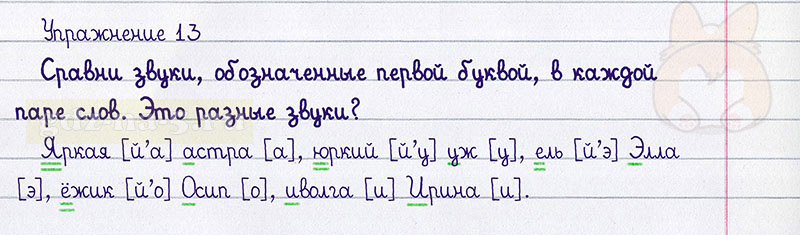 Упражнение 13
Сравни звуки, обозначенные первой буквой, в каждой
паре слов. Это разные звуки?
Яркая [й’а] астра [а], юркий [й’у] уж [у], ель [й’э] Элла
[э], ёжик [й’о] Осип [о], иволга [и] Ирина [и].